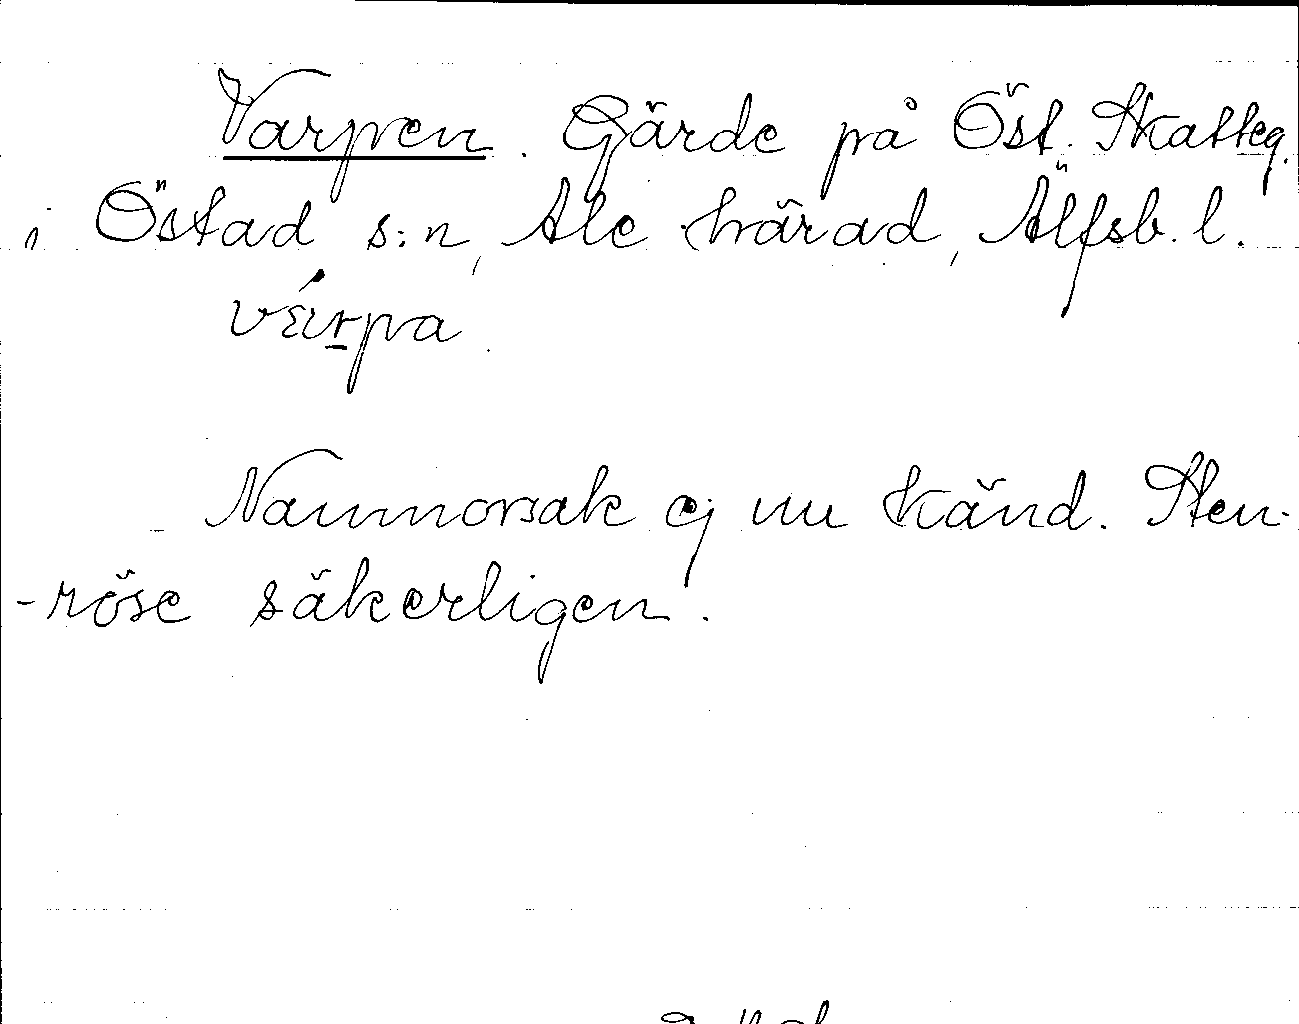 Varpen. Gärde på Öst. Skatteg.
i Östad s:n, Ale härad, Älfsb. l.
várpa
Namnorsak ej nu känd. Sten-
-röse säkerligen.